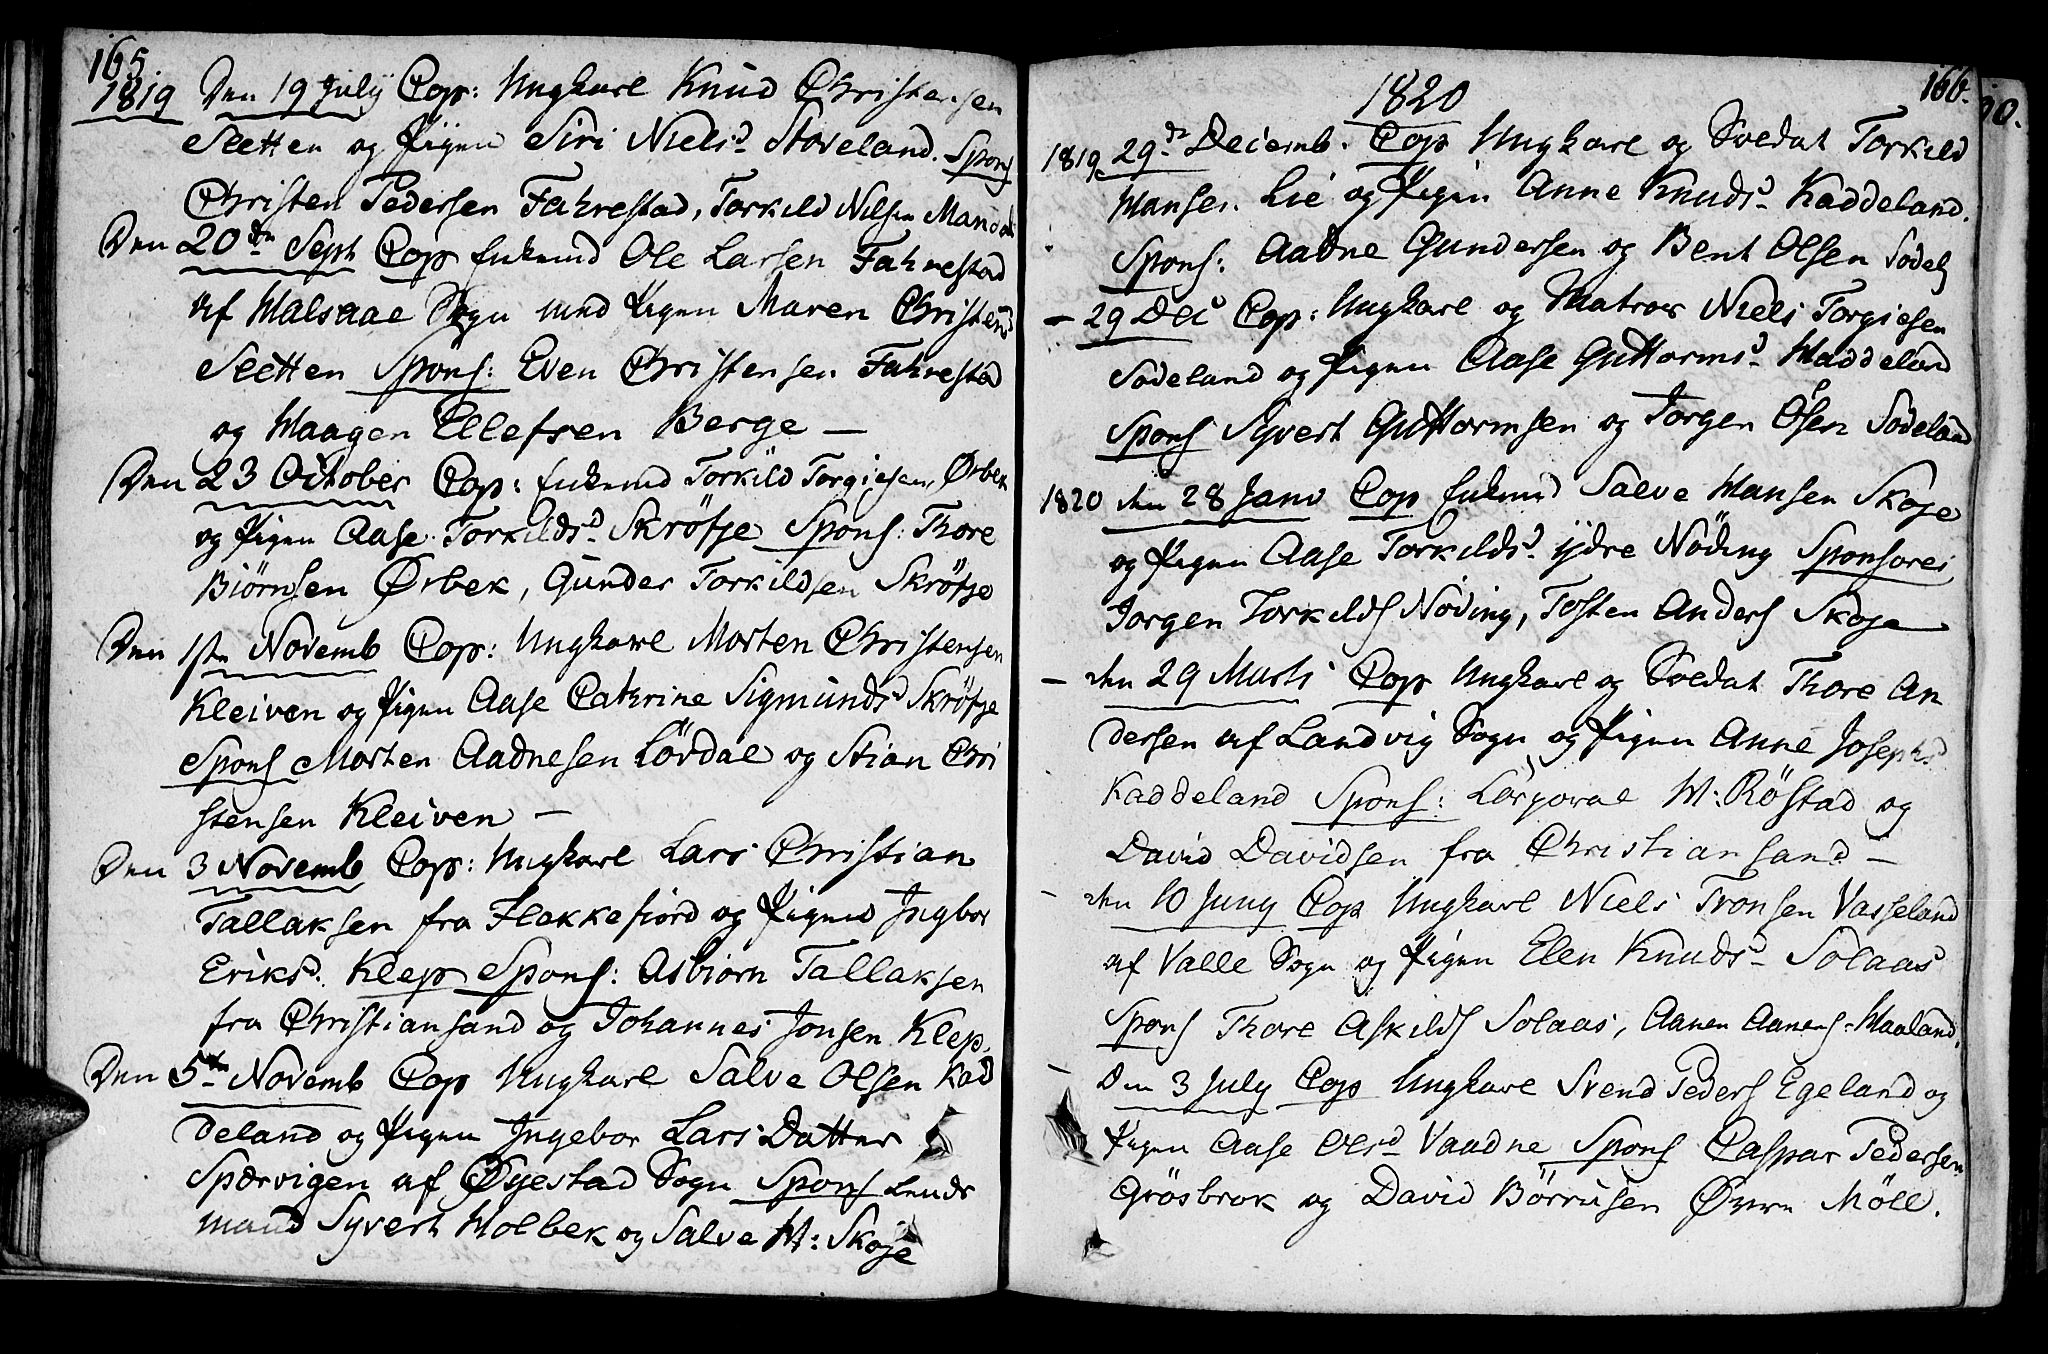 165.
1819 Den 19 July Cop: Ungkarl Knud Christensen
Sletten og Pigen Siri Nielsd. Stoveland. Spons
Christen Pedersen Fahrestad, Torkild Nilsen Mandal
Den 20de Sept Cop Enkemd Ole Larsen Fahrestad
af Halsaae Sogn med Pigen Maren Christensd
Sletten Spons: Even Christensen Fahrestad
og Haagen Ellefsen Berge —
Den 23 October Cop: Enkemd Torkild Torgiesen Ørbek
og Pigen Aase Torkildsd. Skröfje Spons: Thore
Biörnsen Ørbek, Gunder Torkildsen Skröfje
Den 1ste Novemb Cop: Ungkarl Morten Christensen
Kleiven og Pigen Aase Cathrine Sigmundsd Skröfje
Spons Morten Aadnesen Lördal og Stian Chri
stensen Kleiven —
Den 3 Novemb Cop: Ungkarl Lars Christian
Tallaksen fra Flekkefiord og Pigen Ingbor
Eriksd. Klep Spons: Asbiörn Tallaksen
fra Christiansand og Johannes Jonsen Klep.
Den 5te Novemb Cop Ungkarl Salve Olsen Kad
deland og Pigen Ingebor Lars Datter
Spærvigen af Øyestad Sogn Spons Lends
mand Syvert Holbek og Salve H: Skoje
166.
1820
1819 29de Decemb. Cop Ungkarl og Soldat Torkild
Hansen Lie og Pigen Anne Knudsd. Kaddeland.
Spons: Aadne Gundersen og Bent Olsen Södel
— 29 Dec Cop: Ungkarl og Matros Niels Torgiesen
Södeland og Pigen Aase Guttormsd. Haddeland
Spons Syvert Guttormsen og Jörgen Olsen Södeland
1820 den 28 Janv Cop Enkemd Salve Hansen Skoje
og Pigen Aase Torkildsd. ydre Nöding Sponsores
Jörgen Torkilds Nöding, Tosten Anders Skoje
— den 29 Marts Cop Ungkarl og Soldat Thore An
dersen af Landvig Sogn og Pigen Anne Josephd
Kaddeland Spons: Corporal H: Röstad og
David Davidsen fra Christiansand —
- den 10 Juny Cop Ungkarl Niels Tronsen Vasseland
af Valle Sogn og Pigen Elen Knudsd. Solaas
Spons Thore Askilds Solaas, Aanen Aanens Haaland.
— Den 3 July Cop Ungkarl Svend Peders Egeland og
Pigen Aase Olsd Vaadne Spons Caspar Pedersen
Grösbrok og David Börrusen Øvre Möll.